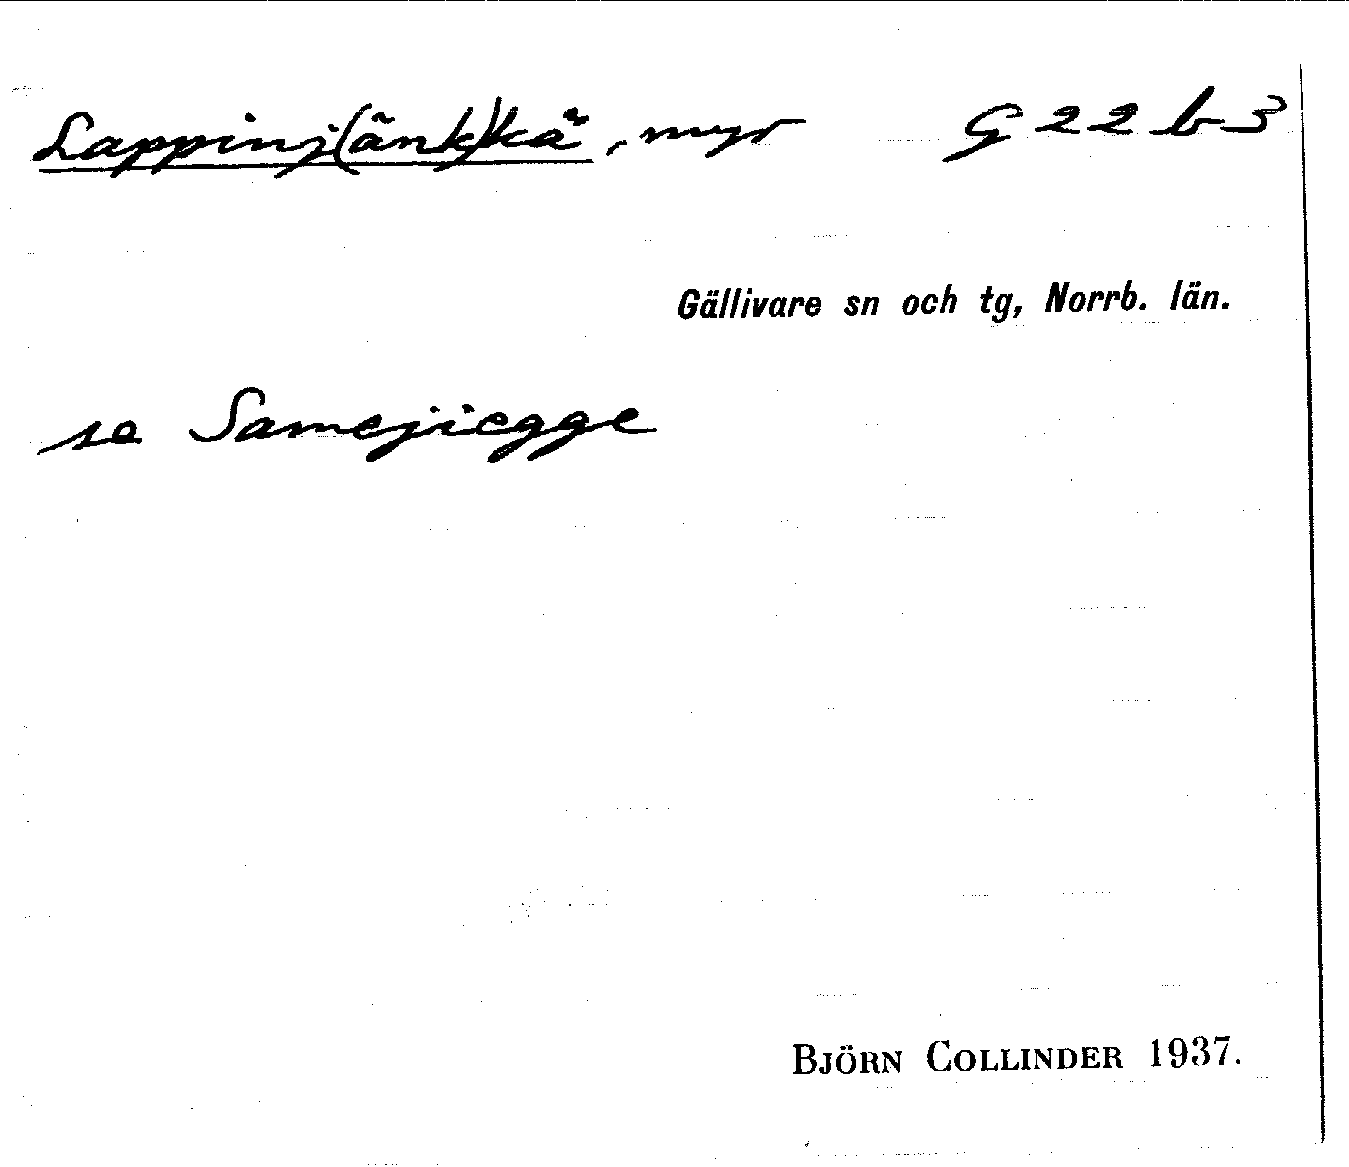 Lappinj(änk)kä, myr G 22 b 3
Gällivare sn och tg, Norrb. län.
se Samejiegge
BJÖRN COLLINDER 1937.